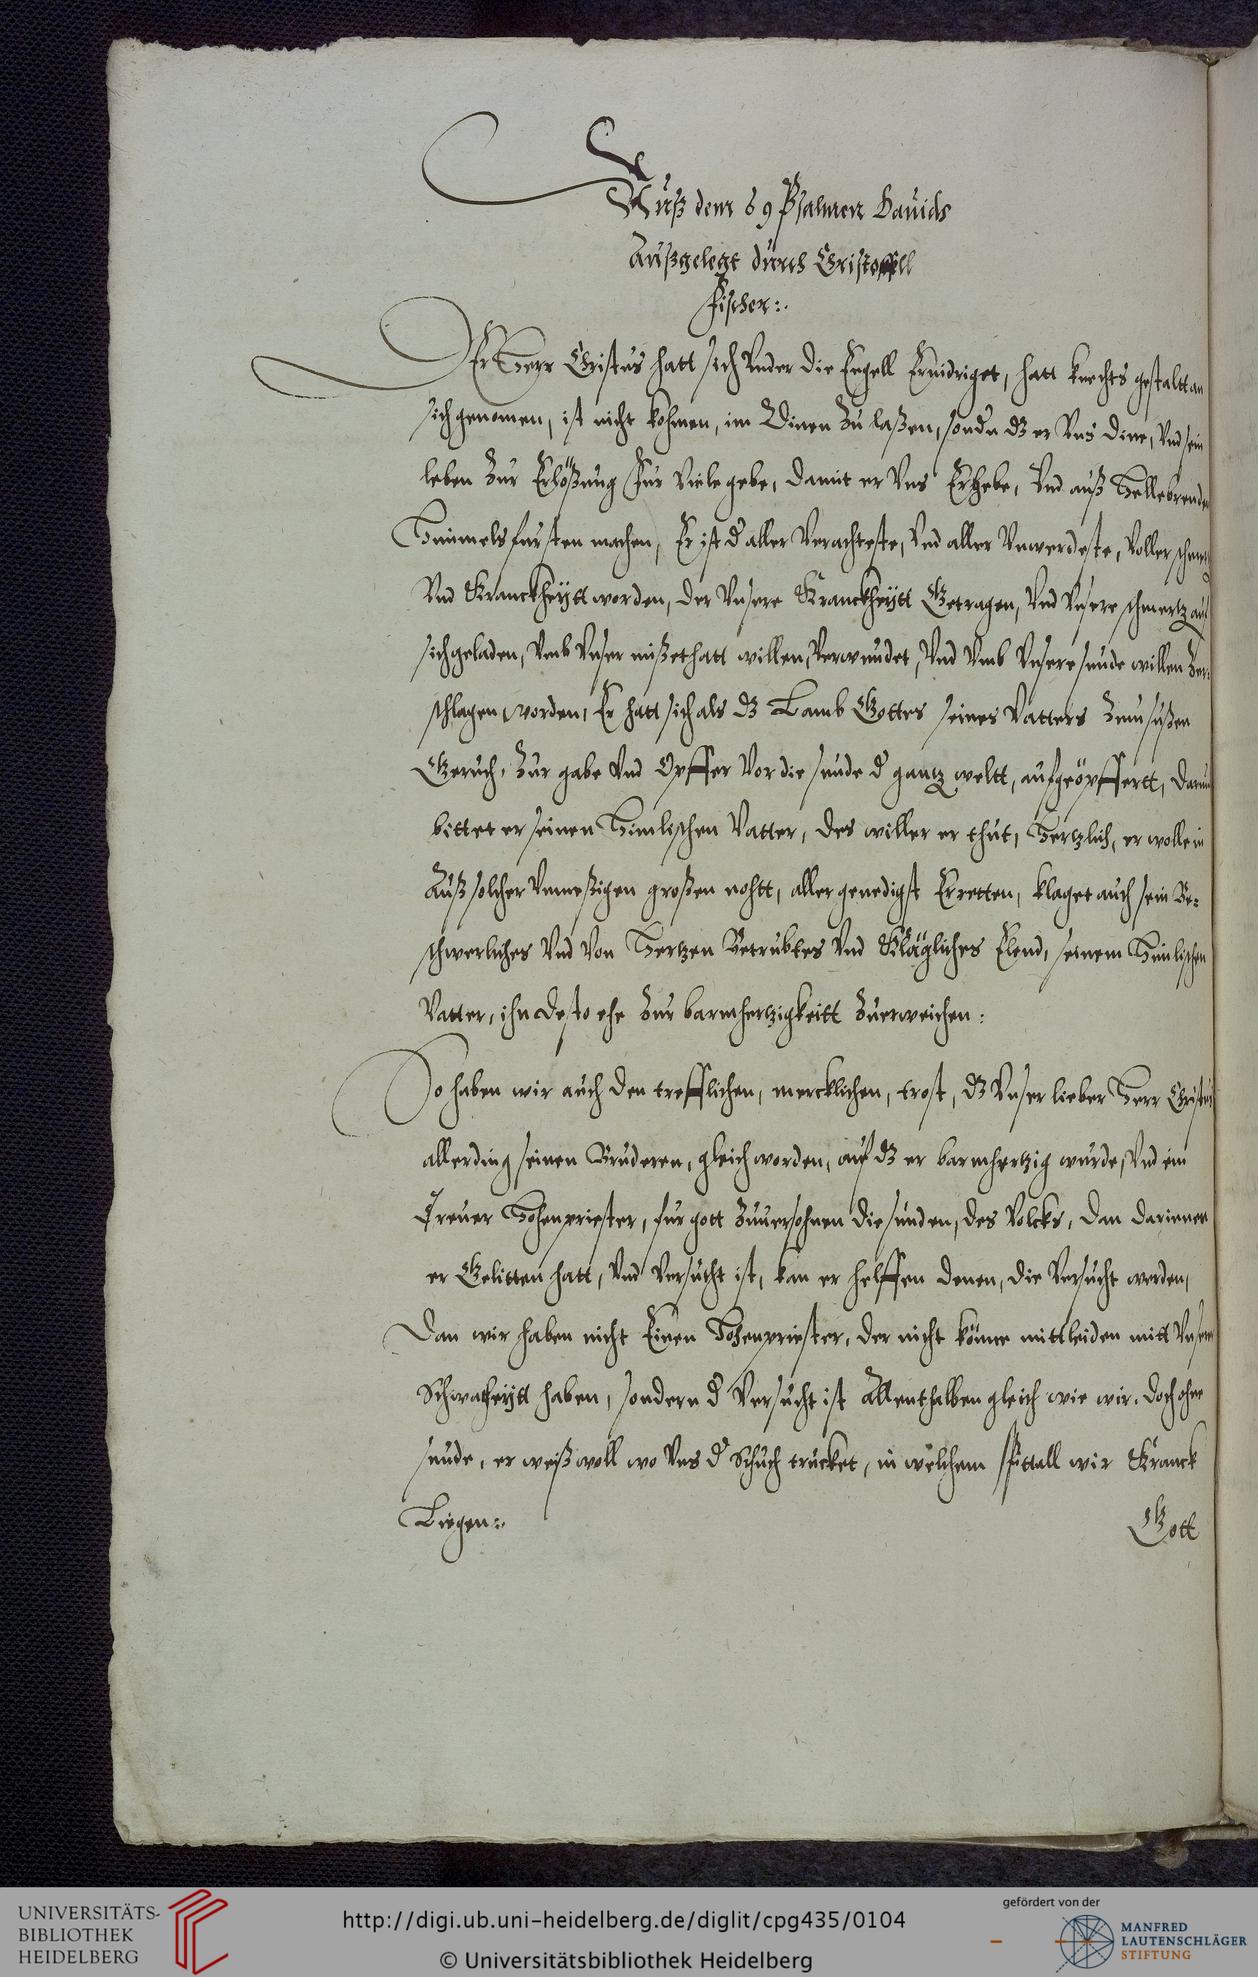 Auß dem 69 Psalmen Dauids
Außgelegt durch Cristoffell
Fischer:.
DEr Herr Cristus hatt sich Vnder die Engell Ernidriget, hatt knechts gestaltt an
sich genomen, ist nicht kohmen, im Dinen Zu laßen, sondn dz er Vns dine, Vnd sein
leben Zur Erlößung Fur Viele gebe, damit er Vns Erhebe, Vnd auß Hellebrenden
Himmelsfursten machen, Er ist d aller Verachteste, Vnd aller Vnwerdeste, Voller schmertz
Vnd Kranckheytt worden, der Vnsere Kranckheytt Getragen, Vnd Vnsere schmertz auf
sich geladen, Vmb Vnser mißethatt willen, Verwundet, Vnd Vmb Vnsere sunde willen Zer:
schlagen worden, Er hatt sich als dz Lamb Gottes seines Vatters Zum süßen
Geruch, Zur gabe Vnd Opffer Vor die sunde d gantz weltt, aufgeöpffertt, darum
bittet er seinen Himlischen Vatter, des willen er thut, Hertzlich, er wolle in
Auß solcher Vnmeßigen großen nohtt, aller genedigst Erretten, klaget auch sein Be-
schwerliches Vnd Von Hertzen Betrubtes Vnd Klägliches Elend, seinem Himlischen
Vatter, ihn desto ehe Zur barmhertzigkeitt Zuerweichen:
So haben wir auch den trefflichen, mercklichen, trost, dz Vnser lieber Herr Cristus
allerding seinen Bruderen, gleich worden, auf dz er barmhertzig wurde, Vnd ein
Treuer Hohenpriester, fur gott Zuuersohnen die sunden, des Volcks, dan darinnen
er Gelitten hatt, Vnd Versucht ist, kan er helffen denen, die Versucht werden,
Dan wir haben nicht Einen Hohenpriester, der nicht könne mittleiden mitt Vnserer
Schwacheytt haben, sondern d Versucht ist Allenthalben gleich wie wir, doch ohne
sunde, er weiß woll wo Vns d Schuch trucket, in welchem spittall wir Kranck
Liegen:.
Gott
UNIVERSITÄTS-
BIBLIOTHEK
HEIDELBERG
http://digi.ub.uni-heidelberg.de/diglit/cpg435/0104
© Universitätsbibliothek Heidelberg
gefördert von der
MANFRED
LAUTENSCHLÄGER
STIFTUNG